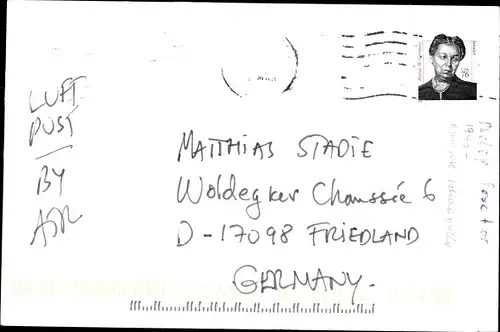 LUFT
POST
BY
AIR
MATTHIAS STADIE
Woldegker Chaussée 6
D-17098 FRIEDLAND
GERMANY.
76